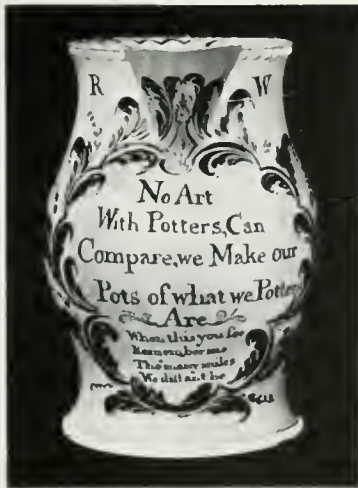 R W
No Art
With Potters, Can
Compare, we Make our
Pots of what we Potters
Are
When this you see
Remember me
Tho many miles
We